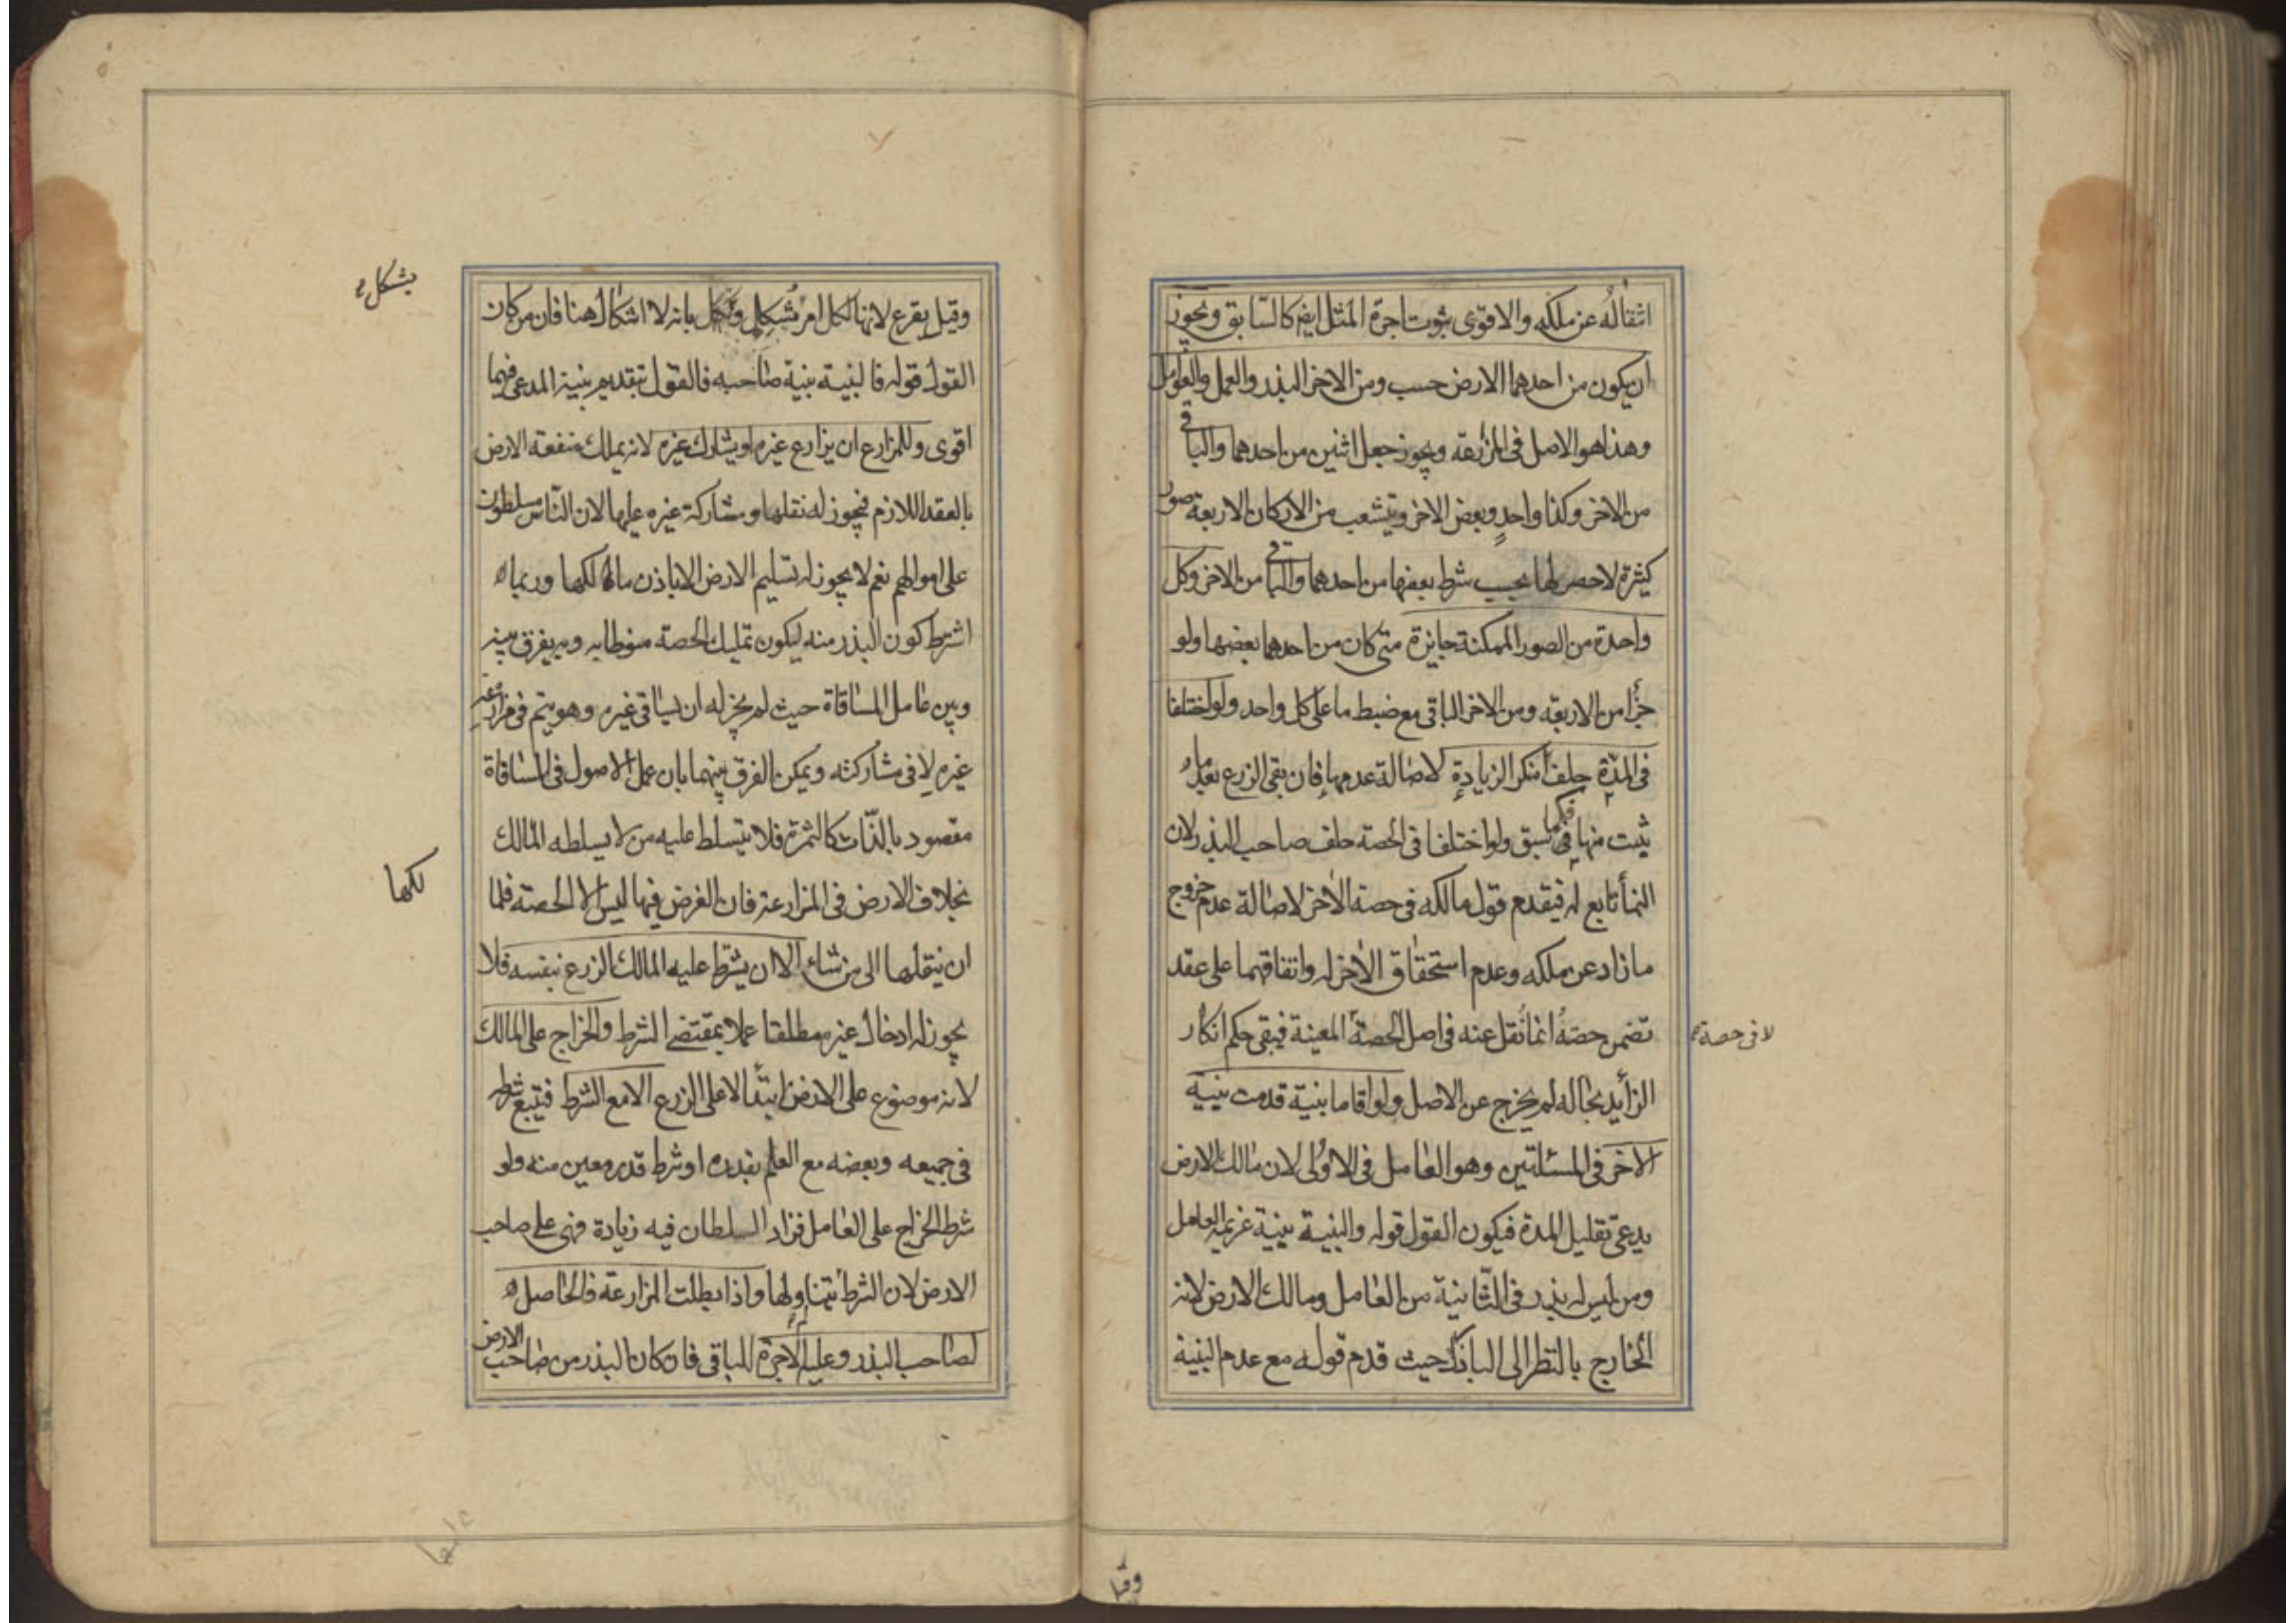 انتقاله عن ملكه والاقوى ثبوت اجرة المثل ايضا كالسابق ويجوز
ان يكون من احدهما الارض حسب ومن الاخر البذر والعمل والعوامل
وهذا هو الاصل فى المزارعة ويجوز جعل اثنين من احدهما والباقى
من الاخر وكذا واحد وبعض الاخر ويتشعب من الاركان الاربعة صور
كثيرة لا حصر لها بحسب شرط بعضها من احدهما والباقى من الاخر وكل
واحدة من الصور الممكنة جايزة متى كان من احدهما بعضها ولو
جزأ من الاربعة ومن الاخر الباقى مع ضبط ما على كل واحد ولو اختلفا
فى المدة حلف منكر الزيادة لاصالة عدمها فان بقى الزرع بعد ما
ثبت منها فكما سبق ولو اختلفا فى الحصة حلف صاحب البذر لان
النمأ تابع له فيقدم قول مالكه فى حصة الاخر لاصالة عدم خروج
ما زاد عن ملكه وعدم استحقاق الاخر له واتفاقهما على عقد
تضمن حصة انما نقل عنه فى اصل الحصة المعينة فيبقى حكم انكار
لا فى حصة
الزأيد بحاله لم يخرج عن الاصل ولو اقاما بنية قدمت بينية
الاخر فى المسئلتين وهو العامل فى الاولى لان مالك الارض
يدعى تقليل المدة فيكون القول قوله والبنية بينية غريمه العامل
ومن ليس له بذر فى الثانية من العامل ومالك الارض لانه
الخارج بالنظر الى الباذر حيث قدم قوله مع عدم البنية
وقيل
وقيل يقرع لانها لكل امر مشكل ويشكل بانه لا اشكال هنا فان من كان
يشكل
القول قوله فالبنية بنية صاحبه فالقول بتقديم بنية المدعى فيهما
اقوى وللمزارع ان يزارع غيره او يشارك غيره لانه يملك منفعة الارض
بالعقد اللازم فيجوز له نقلها ومشاركة غيره عليها لان الناس مسلطون
على اموالهم نعم لا يجوز له تسليم الارض الا باذن مالكها وربما
اشترط كون البذر منه ليكون تمليك الحصة منوطا به وبه يفرق بينه
وبين عامل المساقاة حيث لم يجز له ان يساقى غيره وهو يتم فى مزارعة
غيره لا فى مشاركته ويمكن الفرق بينهما بان عمل الاصول فى المساقاة
مقصود بالذات كالثمرة فلا يتسلط عليه من لا يسلطه المالك
لكها
بخلاف الارض فى المزارعة فان الغرض فيها ليس الا الحصة فلما
ان ينقلها الى من شاء الا ان يشرط عليه المالك الزرع بنفسه فلا
يجوز له ادخال غيره مطلقا عملا بمقتضى الشرط والخراج على المالك
لانه موضوع على الارض ابتدأ لا على الزرع الا مع الشرط فيتبع شرطه
فى جميعه وبعضه مع العلم بقدره او شرط قدر معين منه ولو
شرط الخراج على العامل فزاد السلطان فيه زيادة فهى على صاحب
الارض لان الشرط لم يتناولها واذا بطلت المزارعة فالحاصل
لصاحب البذر وعليه الاجرة للباقى فان كان البذر من صاحب الارض
عليها